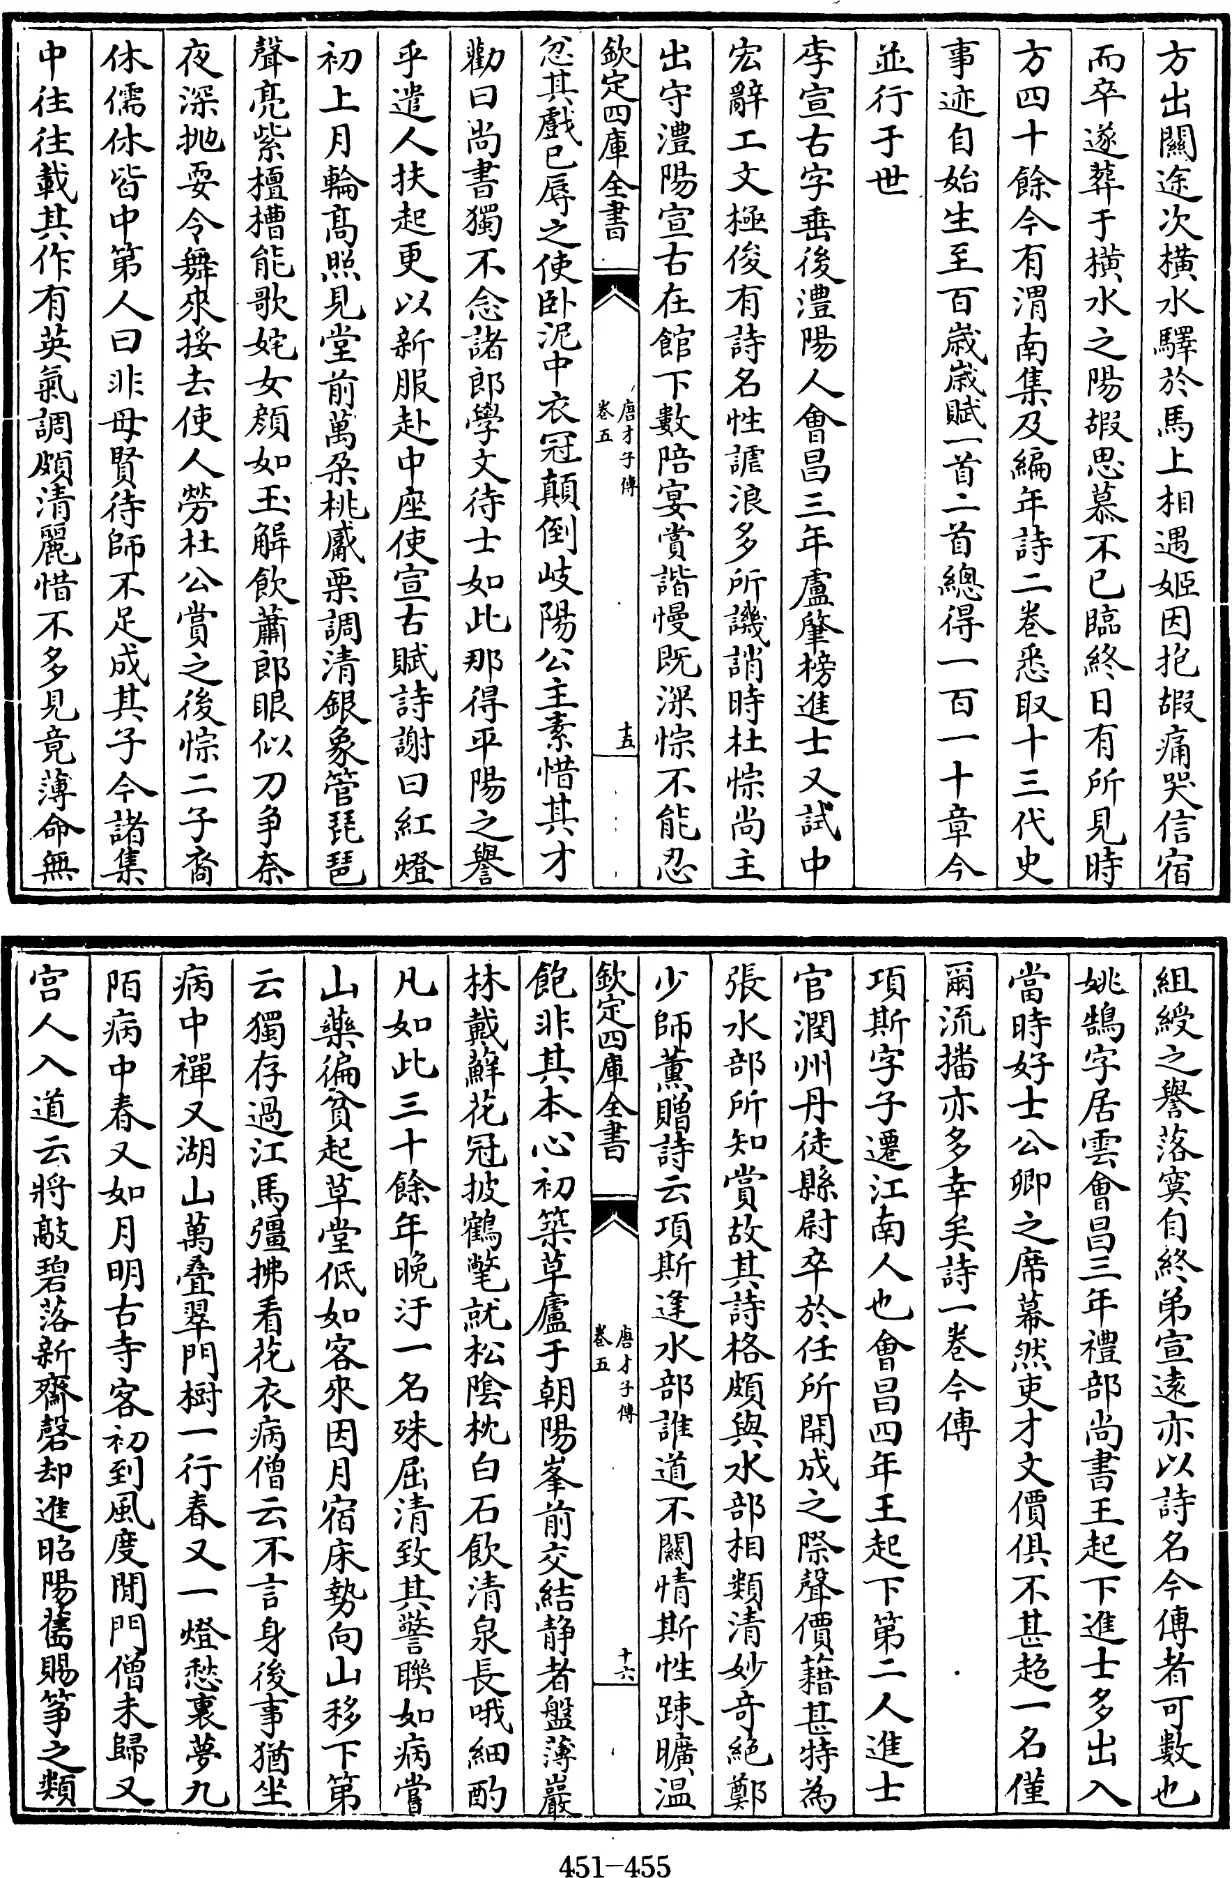 方出關途次横水驛於馬上相遇姬因抱嘏痛哭信宿
而卒遂葬于横水之陽嘏思慕不已臨終日有所見時
方四十餘今有渭南集及編年詩二巻悉取十三代史
事迹自始生至百歲歲賦一首二首總得一百一十章今
並行于世
李宣古字垂後澧陽人會昌三年盧肇榜進士又試中
宏辭工文極俊有詩名性謔浪多所譏誚時杜悰尚主
出守澧陽宣古在館下數陪宴賞諧慢既深悰不能忍
欽定四庫全書
唐才子傳
卷五
十五
忿其戲已辱之使卧泥中衣冠顛倒岐陽公主素惜其才
勸曰尚書獨不念諸郎學文待士如此那得平陽之譽
乎遣人扶起更以新服赴中座使宣古賦詩謝曰紅燈
初上月輪髙照見堂前萬朶桃觱栗調清銀象管琵琶
聲亮紫檀槽能歌姹女顔如玉解飲蕭郎眼似刀争奈
夜深抛耍令舞來挼去使人勞杜公賞之後悰二子裔
休儒休皆中第人曰非母賢待師不足成其子今諸集
中往往載其作有英氣調頗清麗惜不多見竟薄命無
組綬之譽落寞自終弟宣遠亦以詩名今傳者可數也
姚鵠字居雲會昌三年禮部尚書王起下進士多出入
當時好士公卿之席幕然吏才文價俱不甚超一名僅
爾流播亦多幸矣詩一巻今傳
項斯字子遷江南人也會昌四年王起下第二人進士
官潤州丹徒縣尉卒於任所開成之際聲價藉甚特為
張水部所知賞故其詩格頗與水部相類清妙竒絶鄭
少師薰贈詩云項斯逢水部誰道不關情斯性踈曠温
欽定四庫全書
唐才子傳
卷五
十六
飽非其本心初築草廬于朝陽峯前交結静者盤薄巖
林戴蘚花冠披鶴氅就松陰枕白石飲清泉長哦細酌
凡如此三十餘年晩汙一名殊屈清致其警聯如病嘗
山藥徧貧起草堂低如客來因月宿床勢向山移下第
云獨存過江馬彊拂看花衣病僧云不言身後事猶坐
病中禪又湖山萬疊翠門樹一行春又一燈愁裏夢九
陌病中春又如月明古寺客初到風度閒門僧未歸又
宫人入道云將敲碧落新齋磬却進昭陽舊賜筝之類
451-455